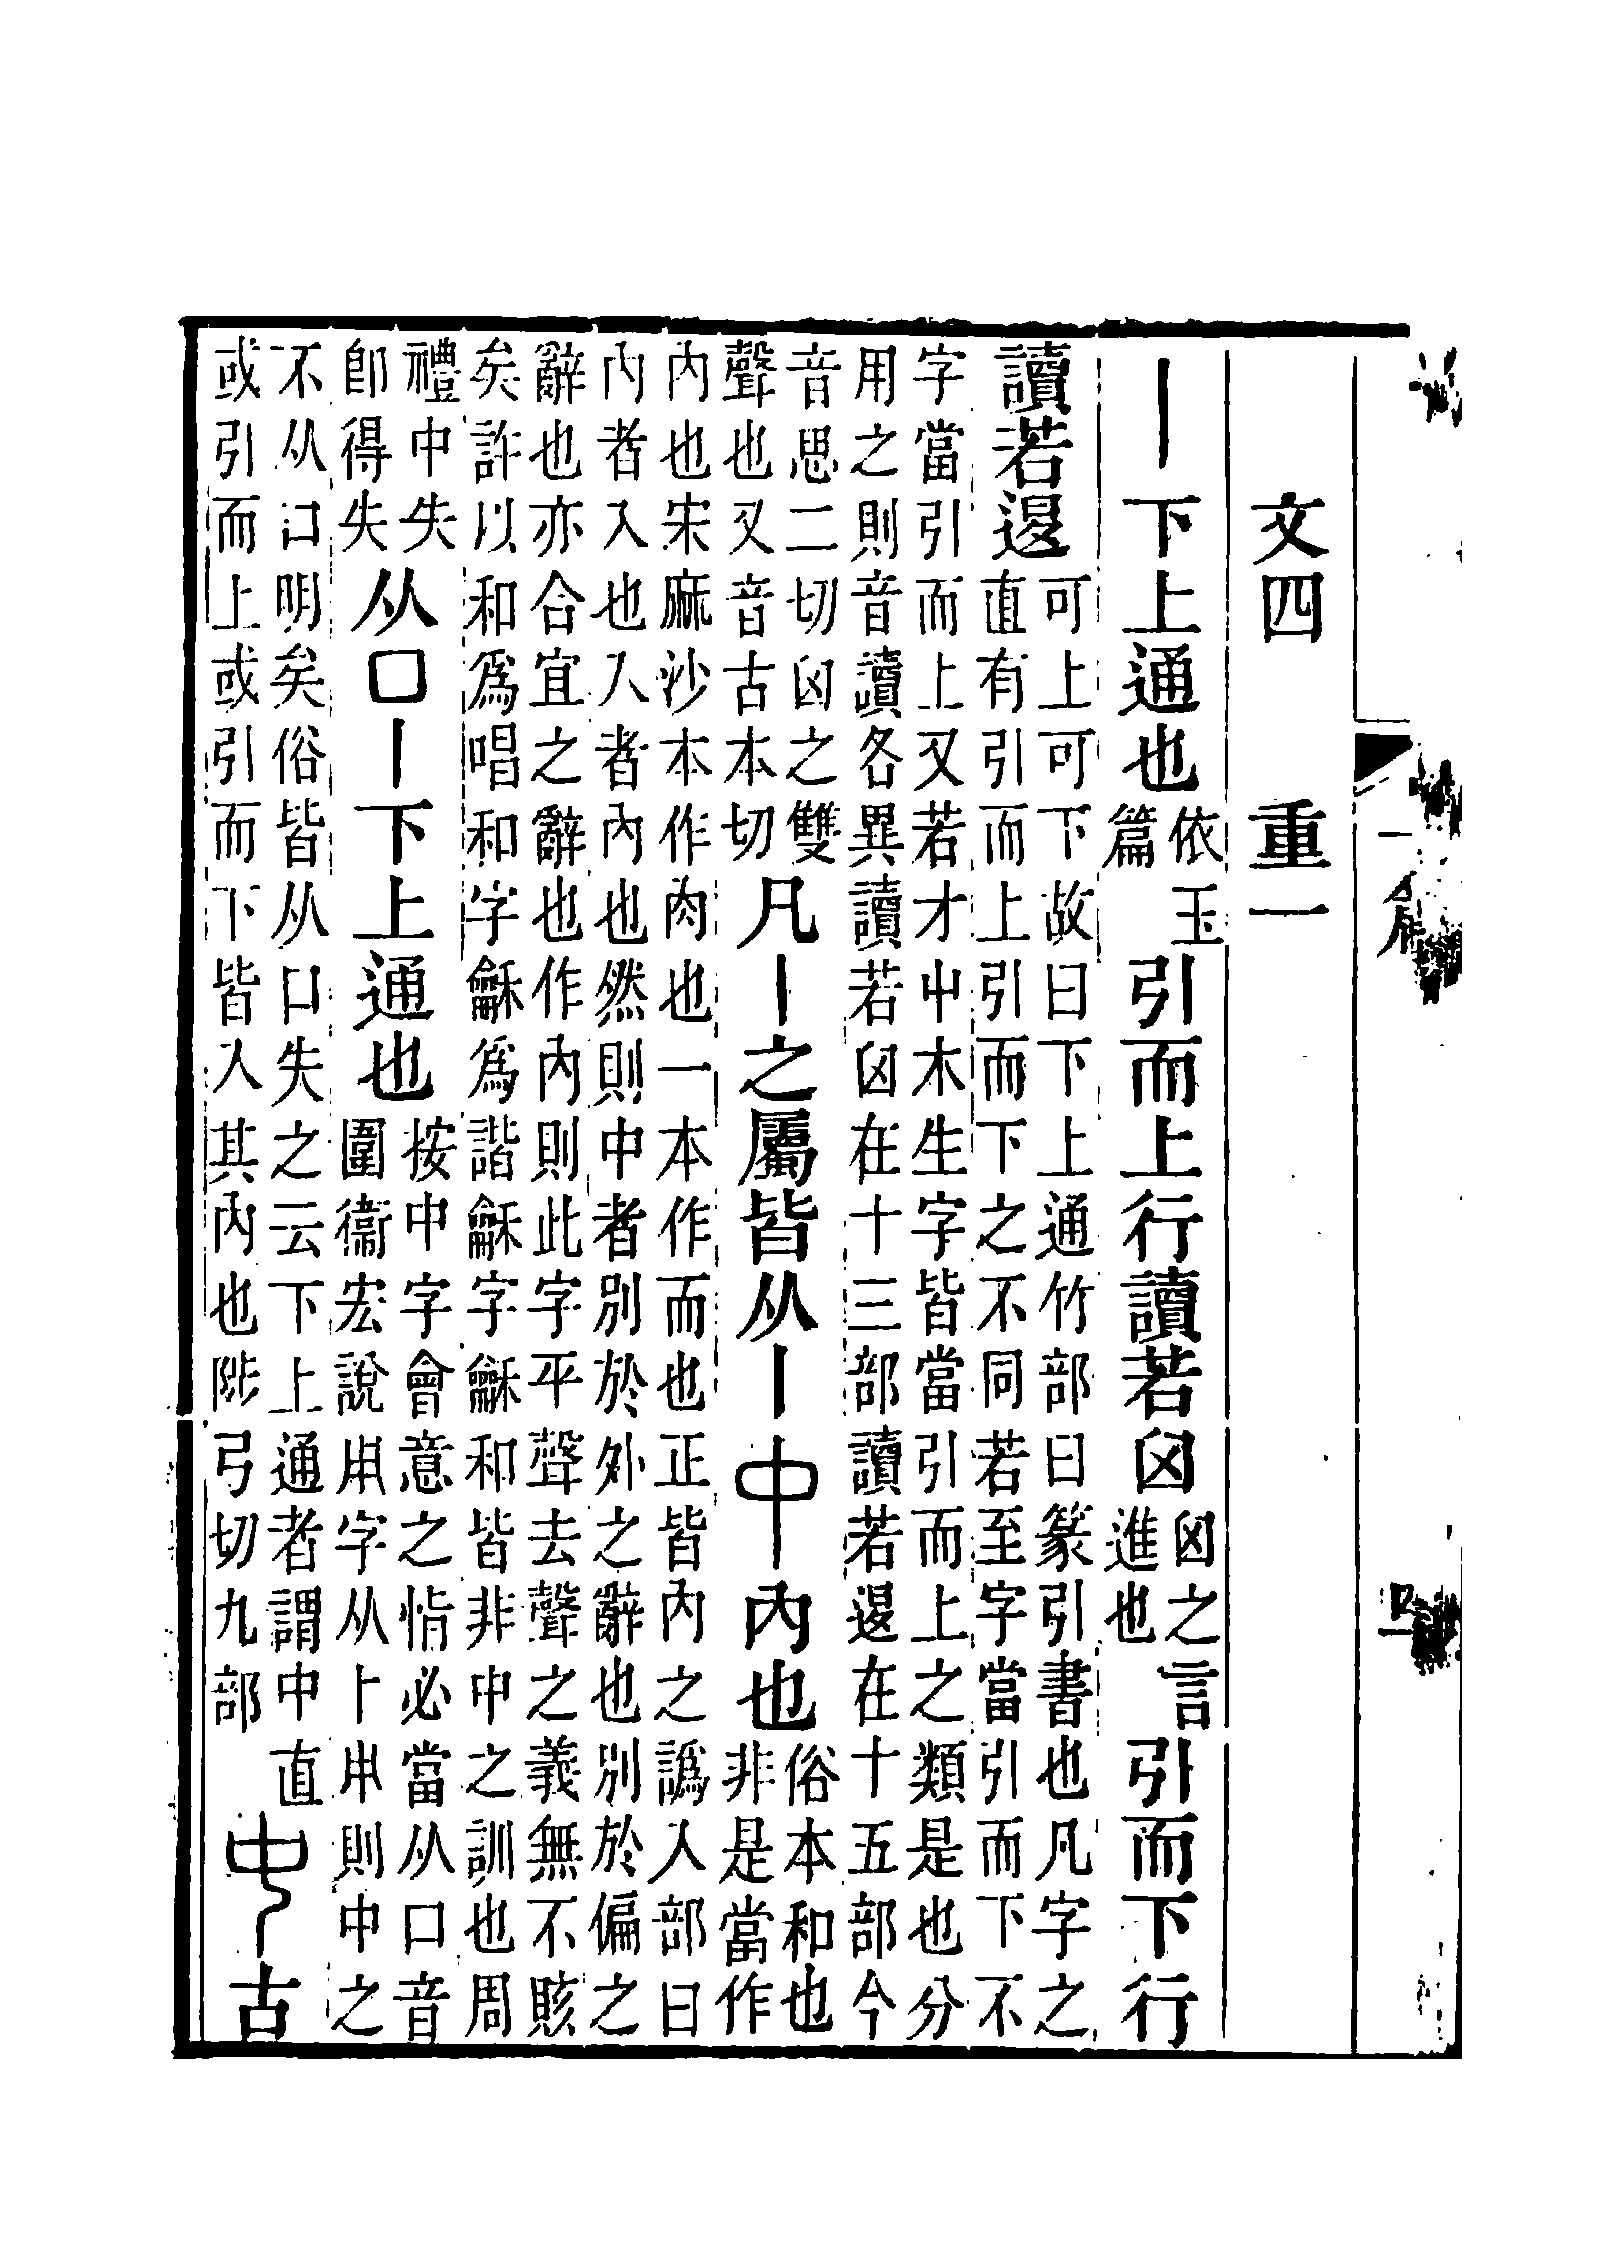 文四　重一
丨下上通也依玉篇引而上行讀若囟囟之言進也引而下行
讀若𨓤可上可下故曰下上通竹部曰篆引書也凡字之直有引而上引而下之不同若至字當引而下不
字當引而上又若才屮木生字皆當引而上之類是也分用之則音讀各異讀若囟在十三部讀若𨓤在十五部今
音思二切囟之雙聲也又音古本切凡丨之屬皆从丨中內也俗本和也非是當作
內也宋麻沙本作肉也一本作而也正皆內之譌入部曰內者入也入者內也然則中者別於外之辭也別於偏之
辭也亦合宜之辭也作內則此字平聲去聲之義無不賅矣許以和爲唱和字龢爲諧龢字龢和皆非中之訓也周
禮中失卽得失从口丨下上通也按中字會意之恉必當从囗音圍衞宏說𠁩字从卜𠁩則中之
不从口明矣俗皆从口失之云下上通者謂中直或引而上或引而下皆入其內也陟弓切九部𠁧古